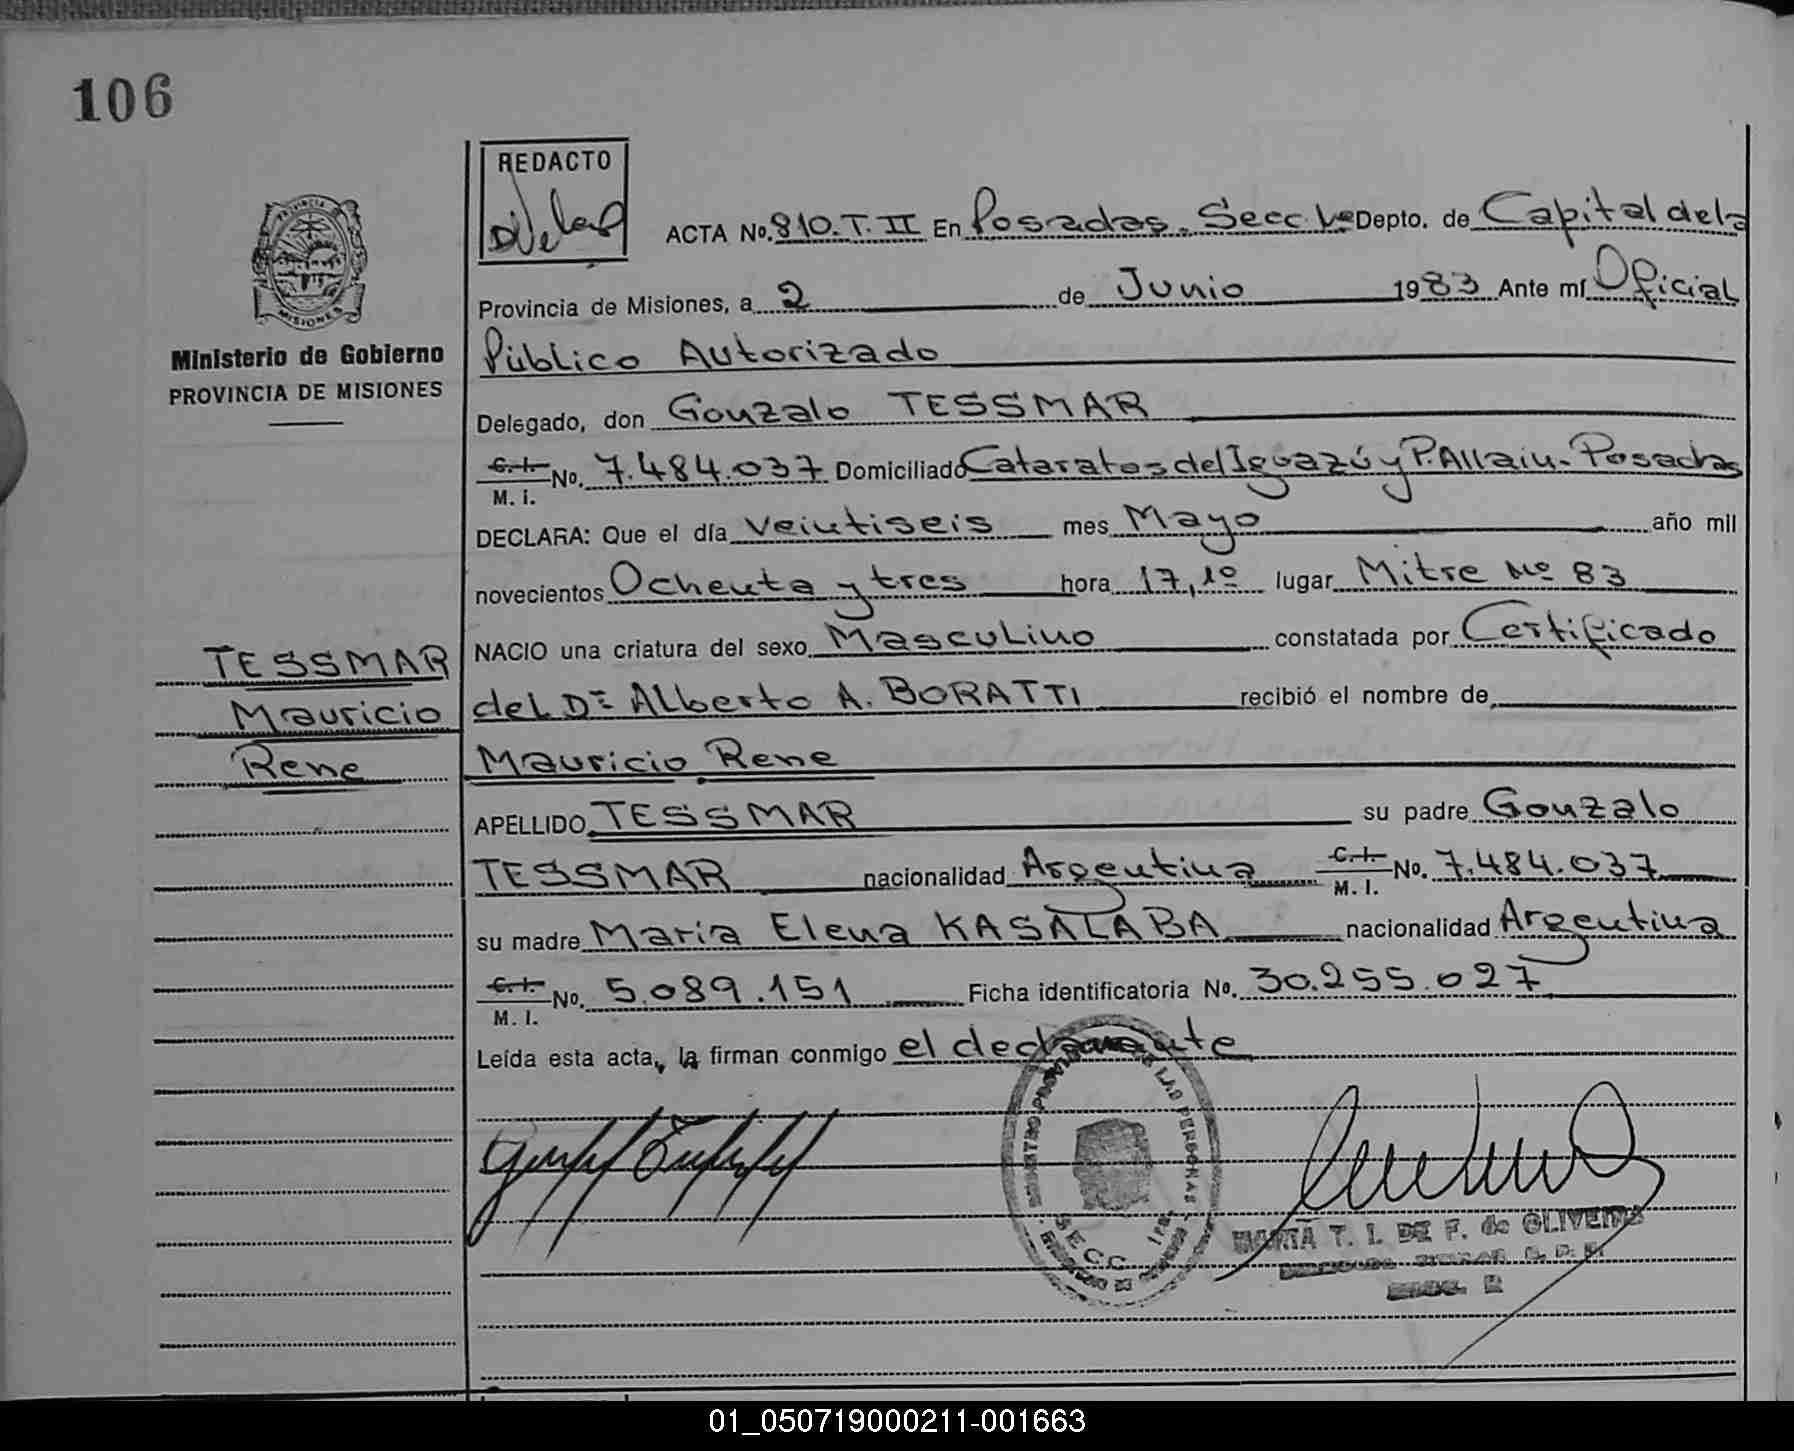 106
REDACTO
ACTA No. 810. T. II En Posadas. Secc 1ª Depto. de Capital de la
PROVINCIA
MISIONES
Provincia de Misiones, a 2 de Junio 1983 Ante mí Oficial
Ministerio de Gobierno
PROVINCIA DE MISIONES
Público Autorizado
Delegado, don Gonzalo TESSMAR
C.I. No. 7.484.037 Domiciliado Cataratas del Iguazú y P. Allain - Posadas
M. I.
DECLARA: Que el día veintiseis mes Mayo año mil
novecientos Ochenta y tres hora 17,10 lugar Mitre Nº 83
NACIO una criatura del sexo Masculino constatada por Certificado
TESSMAR
Mauricio
Rene
del Dr Alberto A. BORATTI recibió el nombre de
Mauricio Rene
APELLIDO TESSMAR su padre Gonzalo
TESSMAR nacionalidad Argentina C.I. No. 7.484.037
M. I.
su madre Maria Elena KASALABA nacionalidad Argentina
C.I. No. 5.089.151 Ficha identificatoria No. 30.255.027
M. I.
Leída esta acta, la firman conmigo el declarante
DE LAS PERSONAS
SECC. 1ra.
MARIA T. I. DE F. de OLIVEIRA
01_050719000211-001663